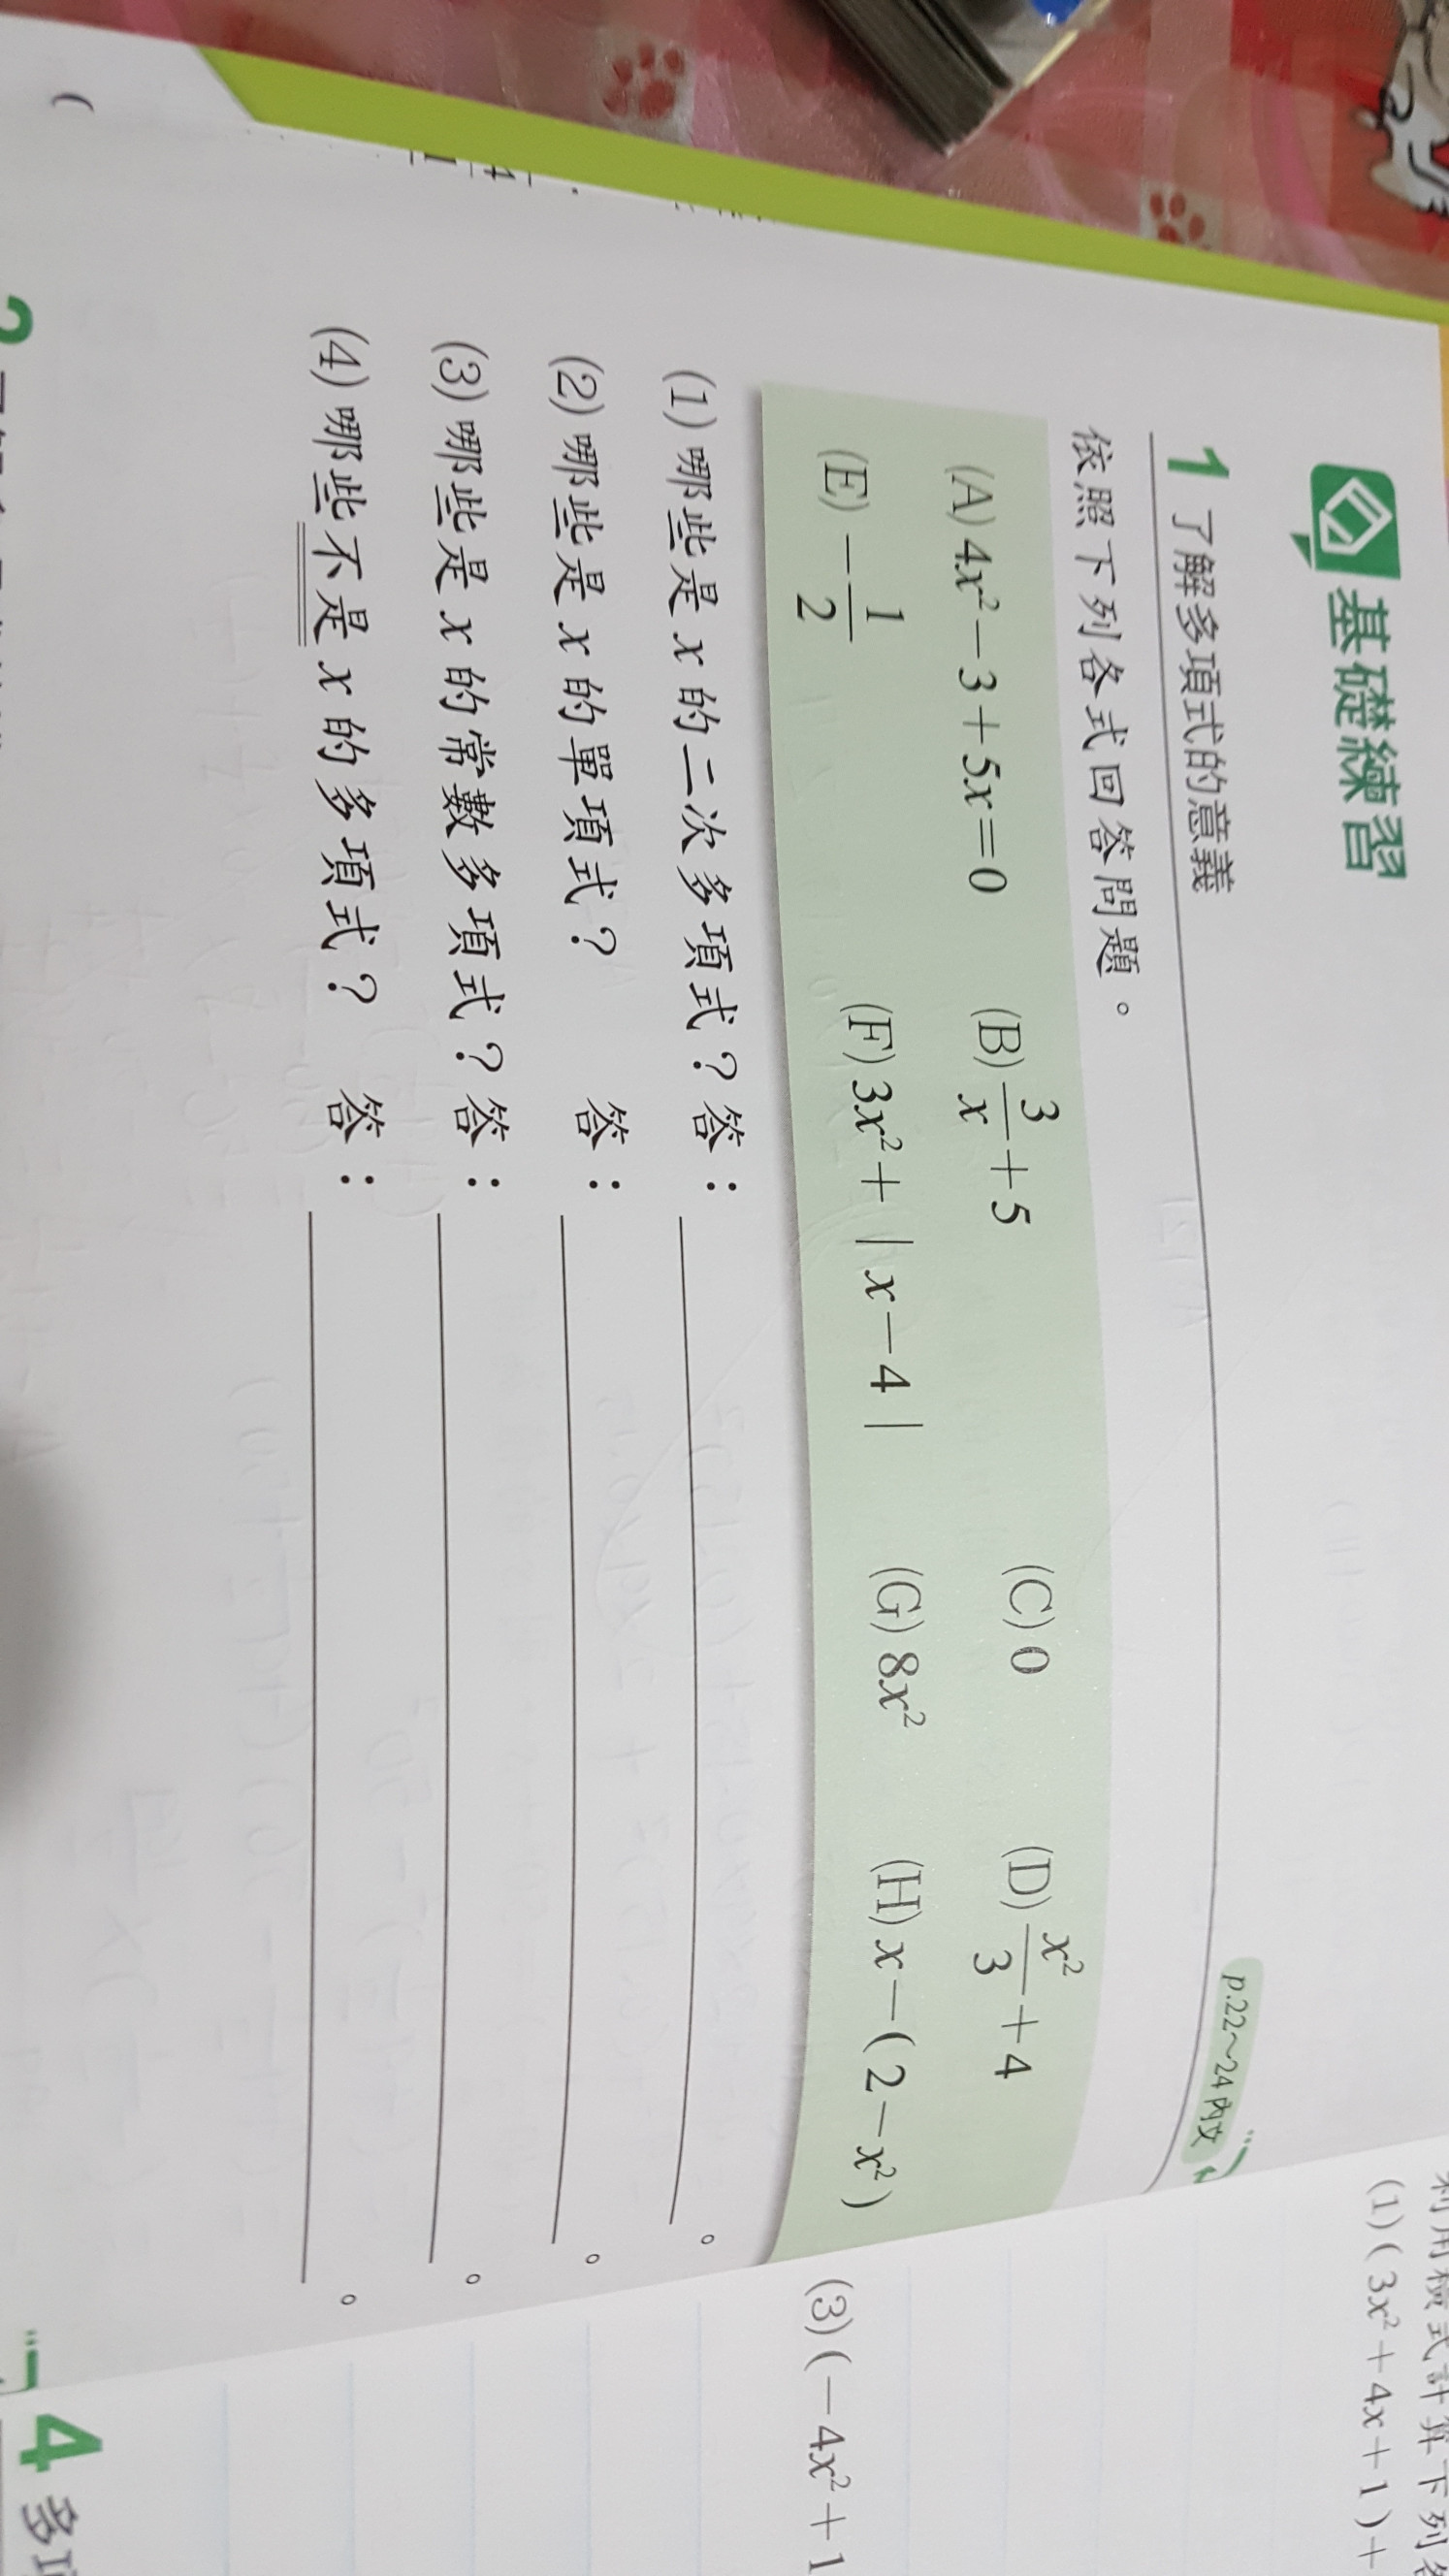 基礎練習
1 了解多項式的意義 p.22～24內文
依照下列各式回答問題。
(A) 4x²－3＋5x＝0 (B) 3/x＋5 (C) 0 (D) x²/3＋4
(E) －1/2 (F) 3x²＋｜x－4｜ (G) 8x² (H) x－(2－x²)
(1) 哪些是 x 的二次多項式？答：。
(2) 哪些是 x 的單項式？ 答：。
(3) 哪些是 x 的常數多項式？答：。
(4) 哪些不是 x 的多項式？ 答：。
2
利用橫式計算下列各
(1) (3x²＋4x＋1)＋
(3) (－4x²＋1
4 多項